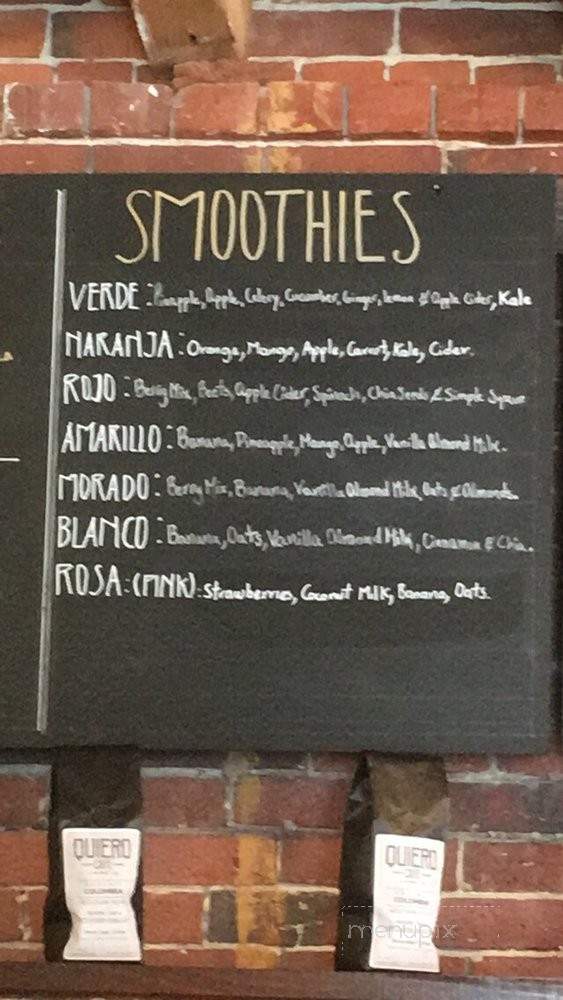 SMOOTHIES
VERDE: Pineapple, Apple, Celery, Cucumber, Ginger, lemon & Apple Cider, Kale
NARANJA: Orange, Mango, Apple, Carrot, Kale, Cider.
ROJO: Berry Mix, Beets, Apple Cider, Spinach, Chia Seeds & Simple
AMARILLO: Banana, Pineapple, Mango, Apple, Vanilla Almond Milk.
MORADO: Berry Mix, Banana, Vanilla Almond Milk, Oats & Almonds.
BLANCO: Banana, Oats, Vanilla Almond Milk, Cinnamon & Chia.
ROSA: (PINK): Strawberries, Coconut Milk, Banana, Oats.
QUIERO
CAFE
COLOMBIA
QUIERO
CAFE
COLOMBIA
menupix